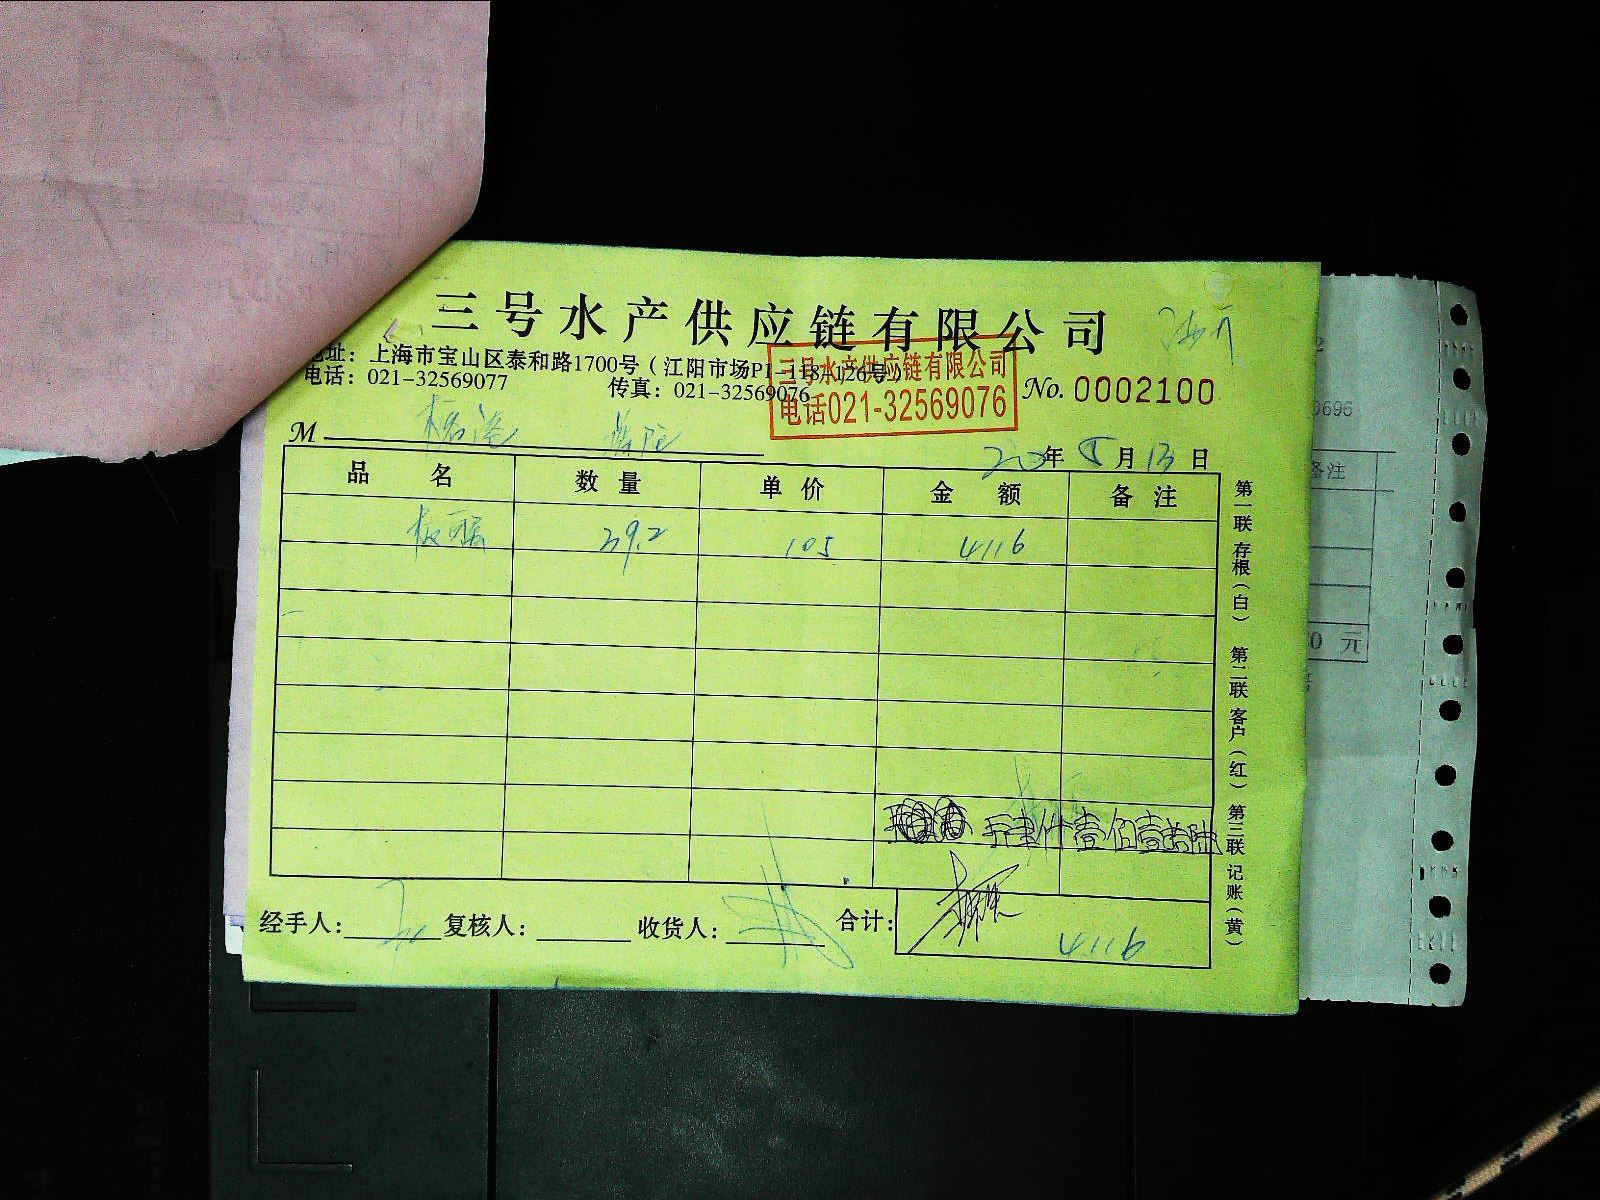 三号水产供应链有限公司
地址：上海市宝山区泰和路1700号（江阳市场P1-118/126号）
电话：021-32569077 传真：021-32569076
三号水产供应链有限公司
电话021-32569076
No. 0002100
M
20年8月13日
品名 数量 单价 金额 备注
39.2 105 4116
壹佰壹拾陆
经手人： 复核人： 收货人： 合计： 4116
第一联 存根（白） 第二联 客户（红） 第三联 记账（黄）
0696
备注
0 元